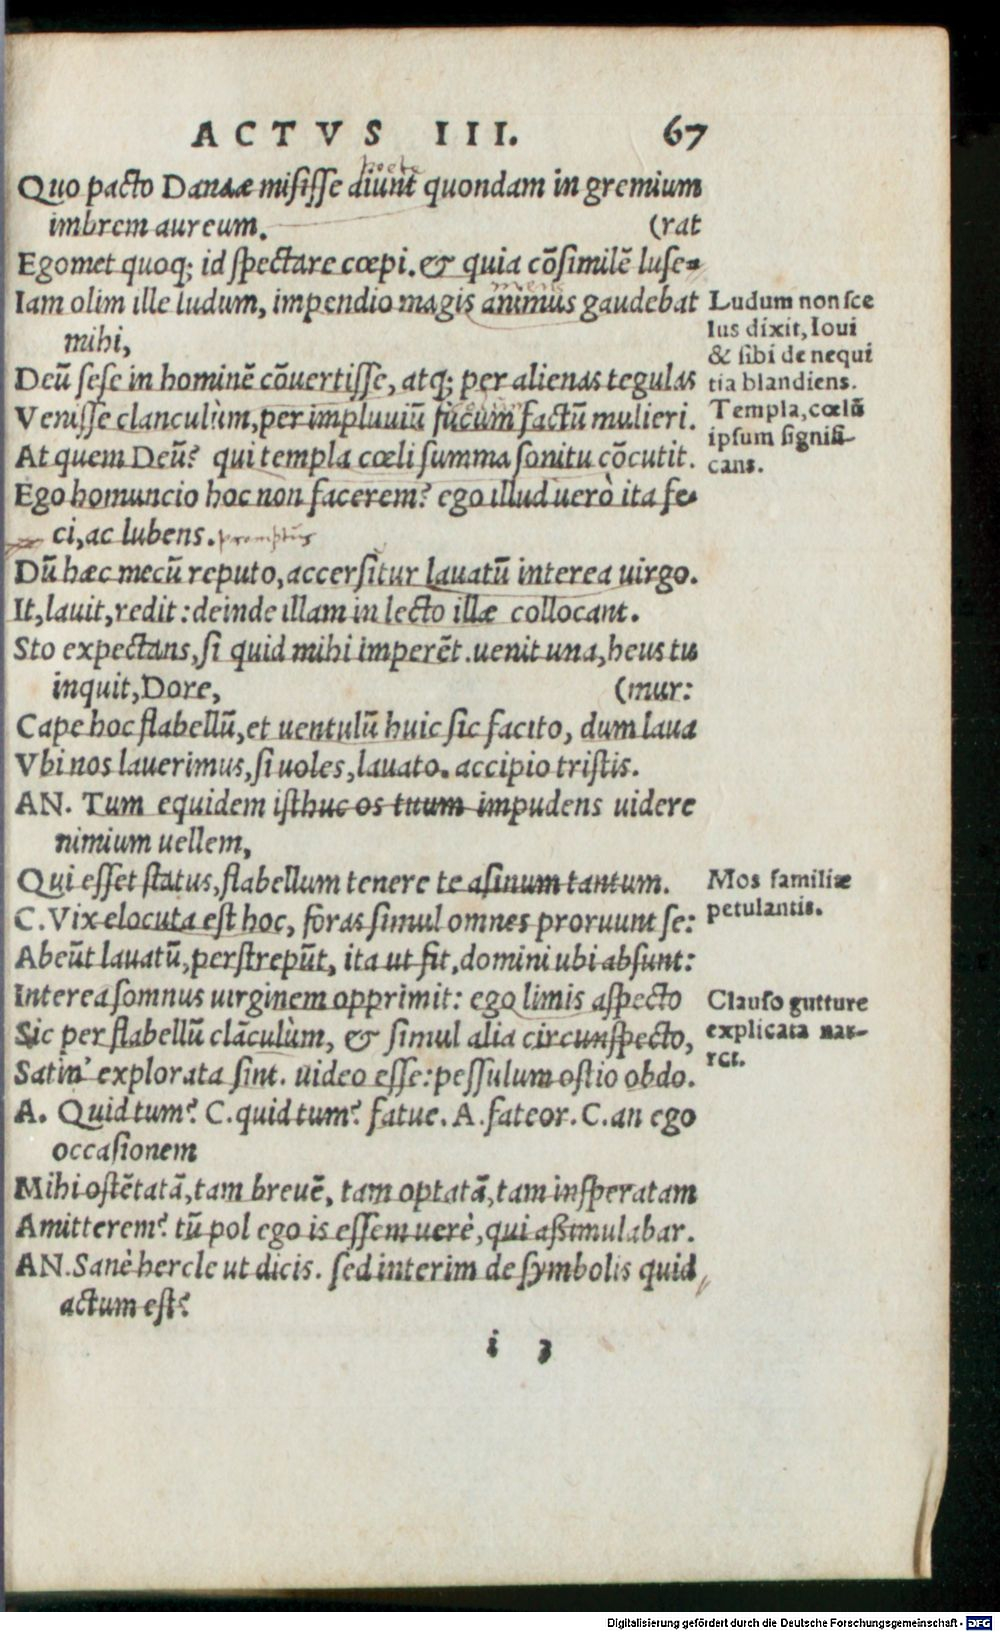 ACTVS III. 67
poetae
Quo pacto Danaæ misisse aiunt quondam in gremium
imbrem aureum. (rat
Egomet quoq; id spectare cœpi. & quia cōsimilē luse-
mens
Iam olim ille ludum, impendio magis animus gaudebat
mihi,
Deū sese in hominē cōuertisse, atq; per alienas tegulas
Venisse clanculùm, per impluuiū fucum factū mulieri.
At quem Deū? qui templa cœli summa sonitu cōcutit.
Ego homuncio hoc non facerem? ego illud uerò ita fe-
ci, ac lubens. promptus
Dū hæc mecū reputo, accersitur lauatū interea uirgo.
It, lauit, redit: deinde illam in lecto illæ collocant.
Sto expectans, si quid mihi imperēt. uenit una, heus tu
inquit, Dore, (mur:
Cape hoc flabellū, et uentulū huic sic facito, dum laua
Vbi nos lauerimus, si uoles, lauato. accipio tristis.
AN. Tum equidem isthuc os tuum impudens uidere
nimium uellem,
Qui esset status, flabellum tenere te asinum tantum.
C. Vix elocuta est hoc, foras simul omnes proruunt se:
Abeūt lauatū, perstrepūt, ita ut fit, domini ubi absunt:
Interea somnus uirginem opprimit: ego limis aspecto
Sic per flabellū clāculùm, & simul alia circunspecto,
Satin' explorata sint. uideo esse: pessulum ostio obdo.
A. Quid tum? C. quid tum? fatue. A. fateor. C. an ego
occasionem
Mihi ostētatā, tam breuē, tam optatā, tam insperatam
Amitterem? tū pol ego is essem uerè, qui assimulabar.
AN. Sanè hercle ut dicis. sed interim de symbolis quid
actum est?
i 3
Ludum non sce
lus dixit, Ioui
& sibi de nequi
tia blandiens.
Templa, cœlū
ipsum signifi-
cans.
Mos familiæ
petulantis.
Clauso gutture
explicata nar-
ret.
Digitalisierung gefördert durch die Deutsche Forschungsgemeinschaft - DFG